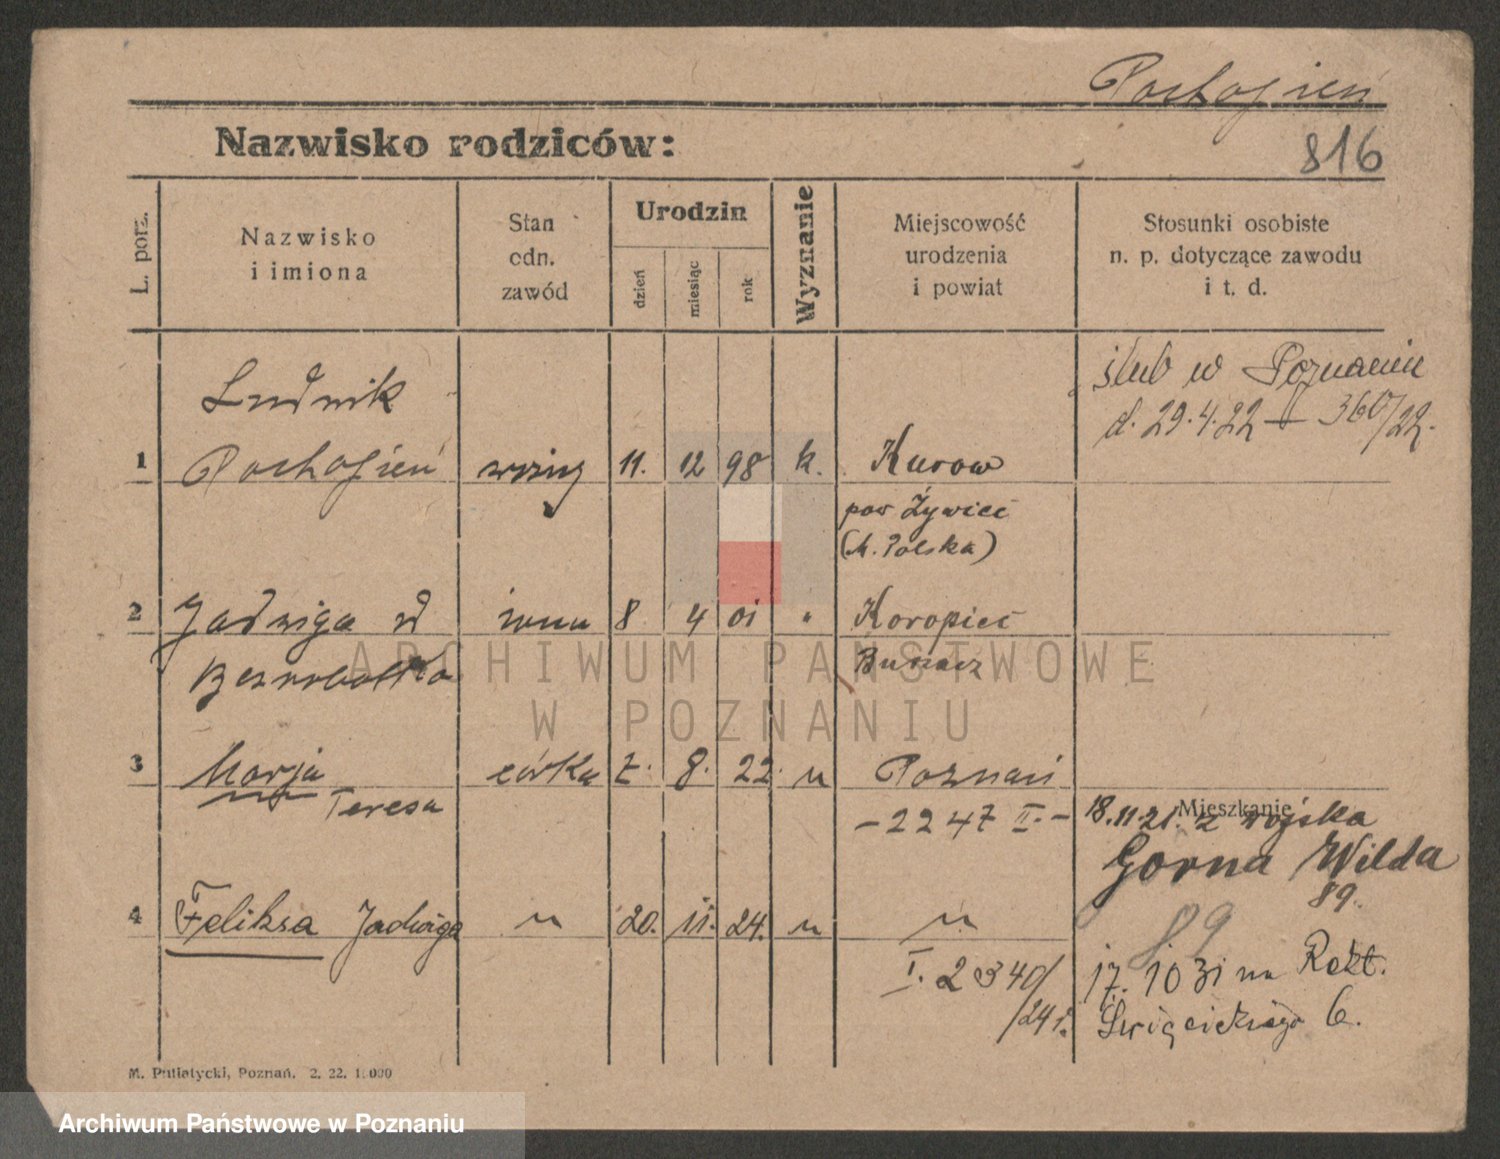 Pochopień
816
Nazwisko rodziców:
L. porz.
Nazwisko
i imiona
Stan
odn.
zawód
Urodzin
dzień
miesiąc
rok
Wyznanie
Miejscowość
urodzenia
i powiat
Stosunki osobiste
n. p. dotyczące zawodu
i t. d.
ślub w Poznaniu
d. 29.4.22 – 360/22.
Ludwik
1 Pochopień 11. 12 98 k. Kurow
pow Żywiec
(M. Polska)
2 Jadwiga żona 8 4 01 " Koropiec
3 Marja córka 7. 8. 22. " Poznań
Teresa
– 2247 II. –
Mieszkanie
18.11.21. z wojska
Gorna Wilda
89.
89
4 Feliksa Jadwiga " 20. 11. 24. " "
I. 2340/
/24 r.
17. 10 31 na Rekt.
Święcickiego 6.
M. Putiatycki, Poznań. 2. 22. 1.000
ARCHIWUM PAŃSTWOWE
W POZNANIU
Archiwum Państwowe w Poznaniu